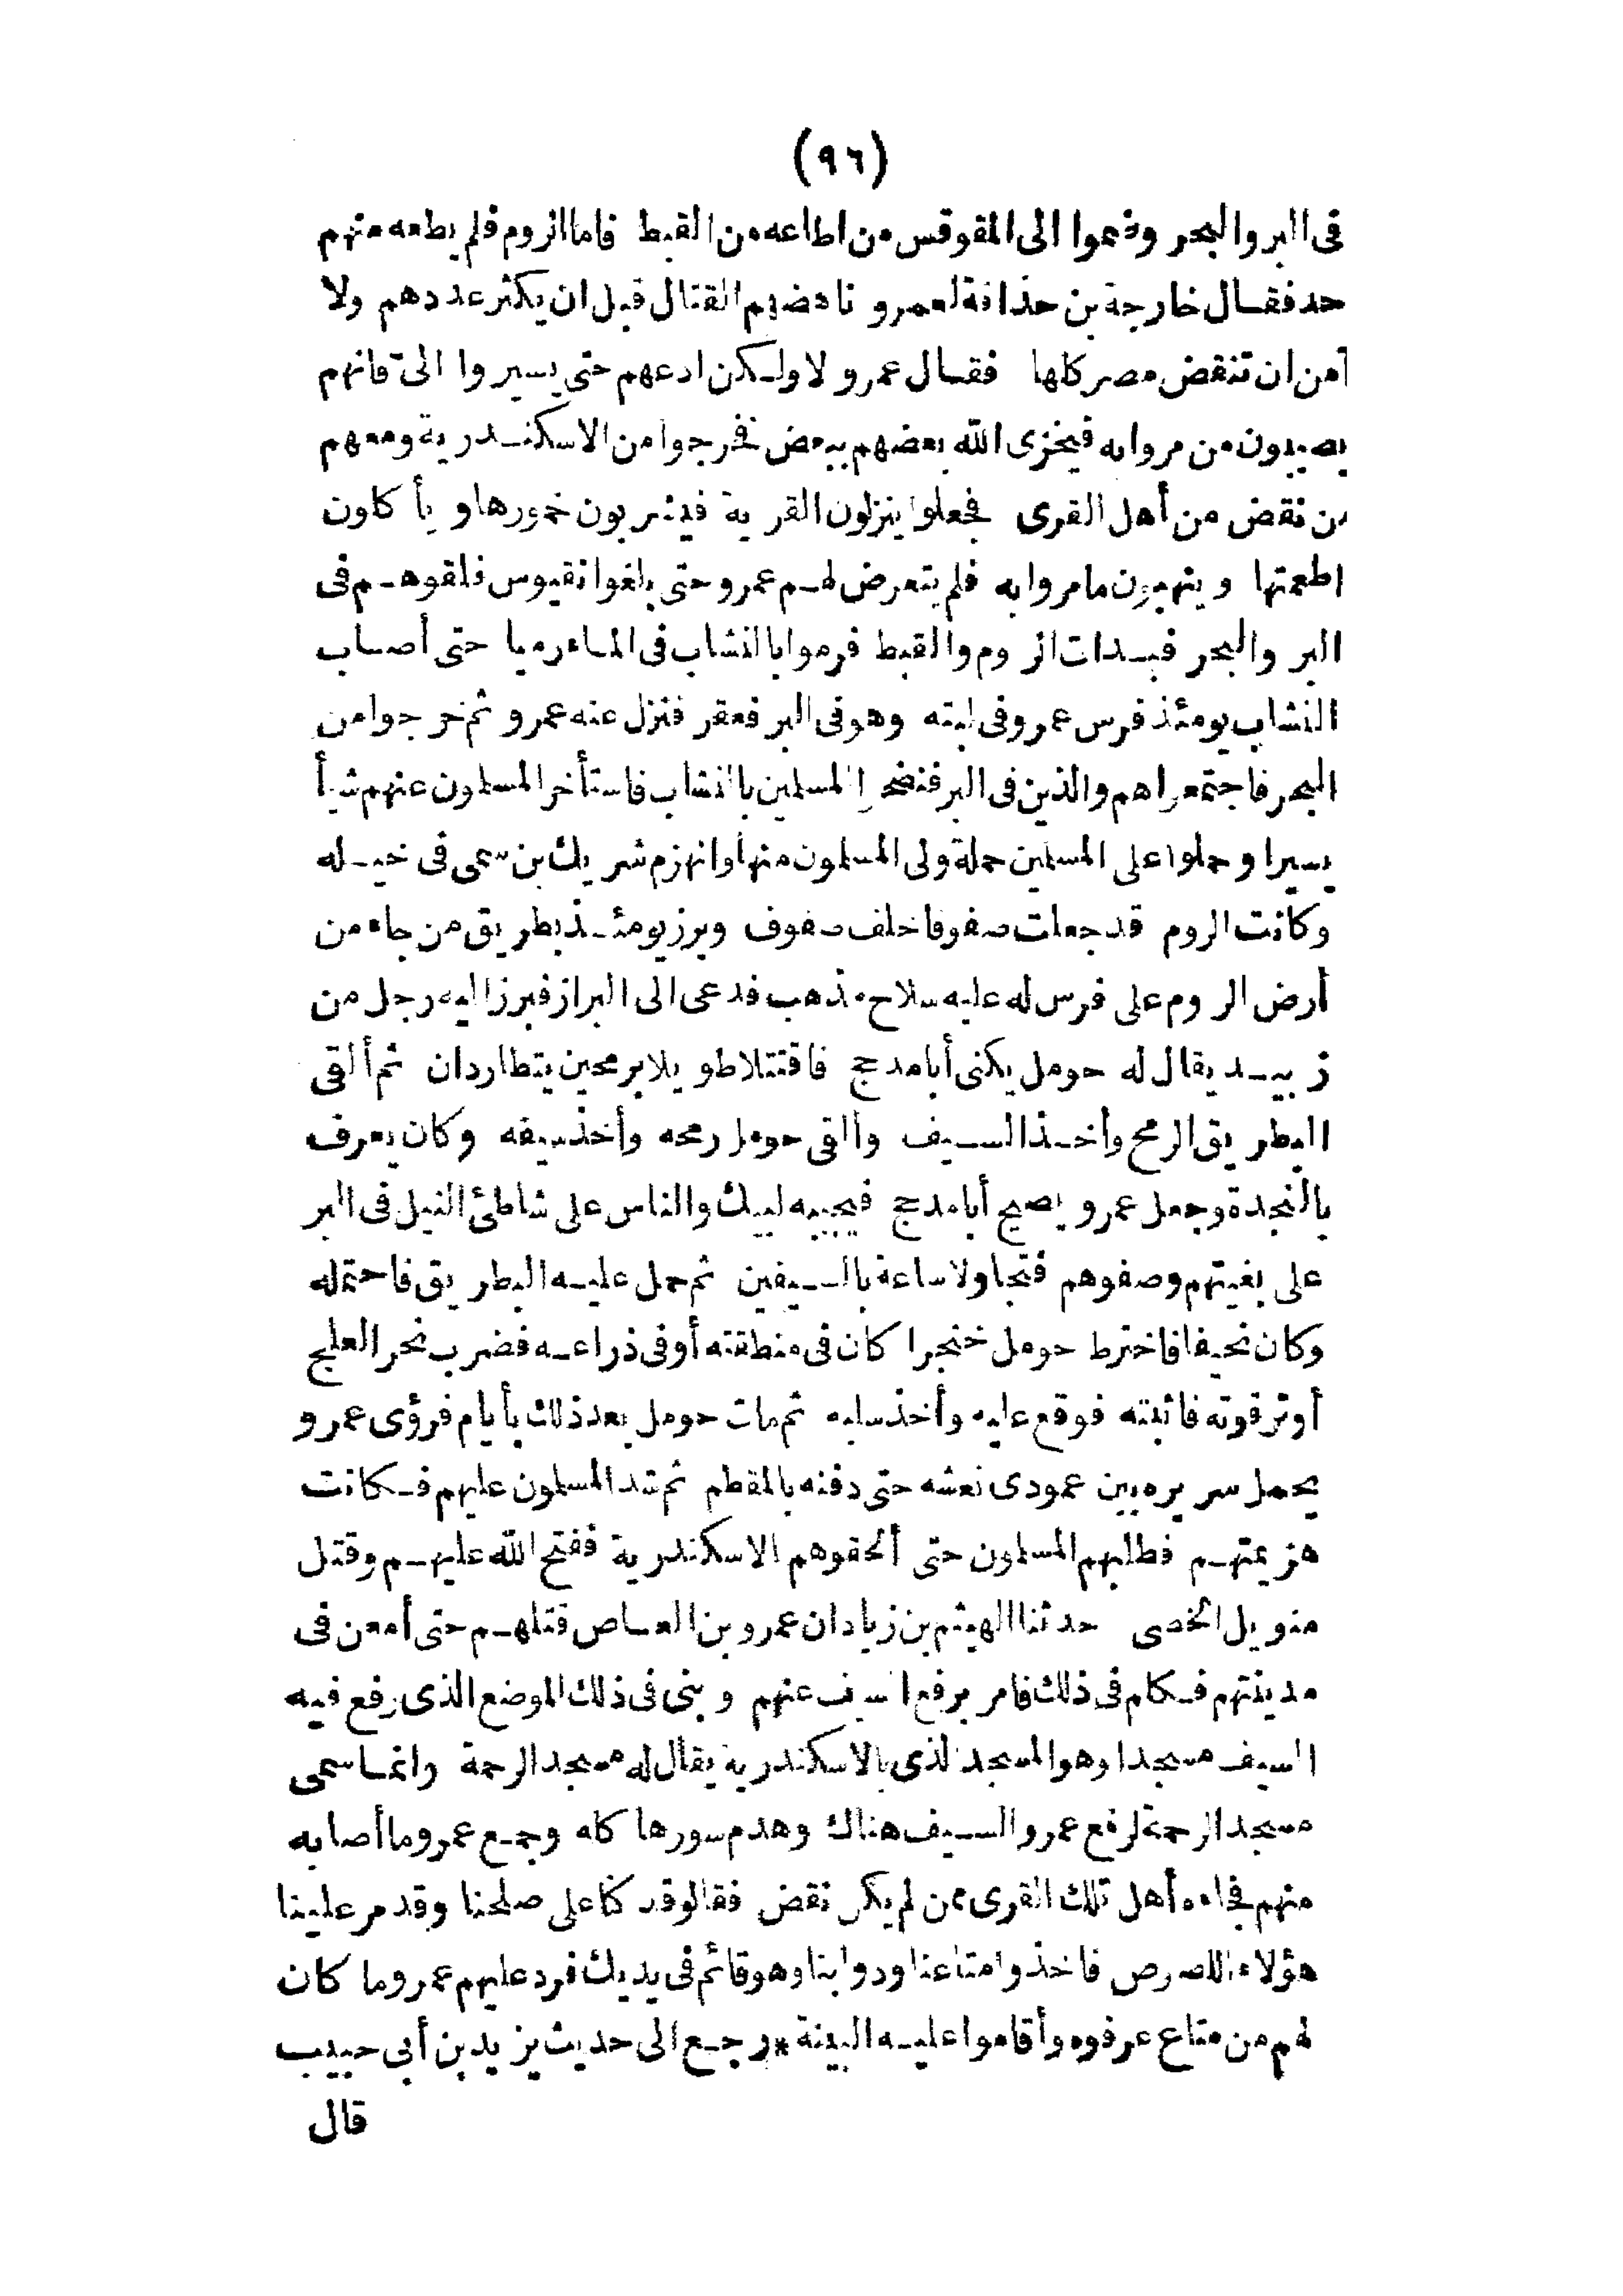 (٩٦)
فى البر والبحر وضموا الى المقوقس من اطاعه من القبط فاما الروم فلم يطعه منهم
حد فقال خارجة بن حذافة لعمرو ناهضهم القتال قبل ان يكثر عددهم ولا
آمن ان تنقض مصر كلها فقال عمرو لا ولكن ادعهم حتى يسيروا الىّ فانهم
يصيبون من مروا به فيخزى الله بعضهم ببعض فخرجوا من الاسكندرية ومعهم
من نقض من أهل القرى فجعلوا ينزلون القرية فيشربون خمورها ويأكلون
اطعمتها وينهبون ما مروا به فلم يتعرض لهم عمرو حتى بلغوا نقيوس فلقوهم فى
البر والبحر فبدات الروم والقبط فرموا بالنشاب فى الماء رميا حتى أصاب
النشاب يومئذ فرس عمرو فى لبته وهو فى البر فعقر فنزل عنه عمرو ثم خرجوا من
البحر فاجتمعوا هم والذين فى البر فنضحوا المسلمين بالنشاب فاستأخر المسلمون عنهم شيأ
يسيرا وحملوا على المسلمين حملة ولى المسلمون منها وانهزم شريك بن سمى فى خيله
وكانت الروم قد جعلت صفوفا خلف صفوف وبرز يومئذ بطريق من جاء من
أرض الروم على فرس له عليه سلاح مذهب فدعى الى البراز فبرز اليه رجل من
زبيد يقال له حومل يكنى أبا مدحج فاقتتلا طويلا برمحين يتطاردان ثم ألقى
البطريق الرمح وأخذ السيف وألقى حومل رمحه وأخذ سيفه وكان يعرف
بالنجدة وجعل عمرو يصيح أبا مدحج فيجيبه لبيك والناس على شاطئ النيل فى البر
على بغيتهم وصفوهم فتجاولا ساعة بالسيفين ثم حمل عليه البطريق فاحتمله
وكان نحيفا فاخترط حومل خنجرا كان فى منطقته أو فى ذراعه فضرب نحر العلج
أو ترقوته فاثبته فوقع عليه وأخذ سلبه ثم مات حومل بعد ذلك بأيام فرؤى عمرو
يحمل سريره بين عمودى نعشه حتى دفنه بالمقطم ثم شد المسلمون عليهم فكانت
هزيمتهم فطلبهم المسلمون حتى ألحقوهم الاسكندرية ففتح الله عليهم وقتل
منويل الخصى حدثنا الهيثم بن زياد ان عمرو بن العاص قتلهم حتى أمعن فى
مدينتهم فكلم فى ذلك فامر برفع السيف عنهم وبنى فى ذلك الموضع الذى رفع فيه
السيف مسجدا وهو المسجد الذى بالاسكندرية يقال له مسجد الرحمة وانما سمى
مسجد الرحمة لرفع عمرو السيف هناك وهدم سورها كله وجمع عمرو ما أصاب
منهم فجاءه أهل تلك القرى ممن لم يكن نقض فقالوا قد كنا على صلحنا وقد مر علينا
هؤلاء اللصوص فاخذوا متاعنا ودوابنا وهو قائم فى يديك فرد عليهم عمرو ما كان
لهم من متاع عرفوه وأقاموا عليه البينة * رجع الى حديث يزيد بن أبى حبيب
قال